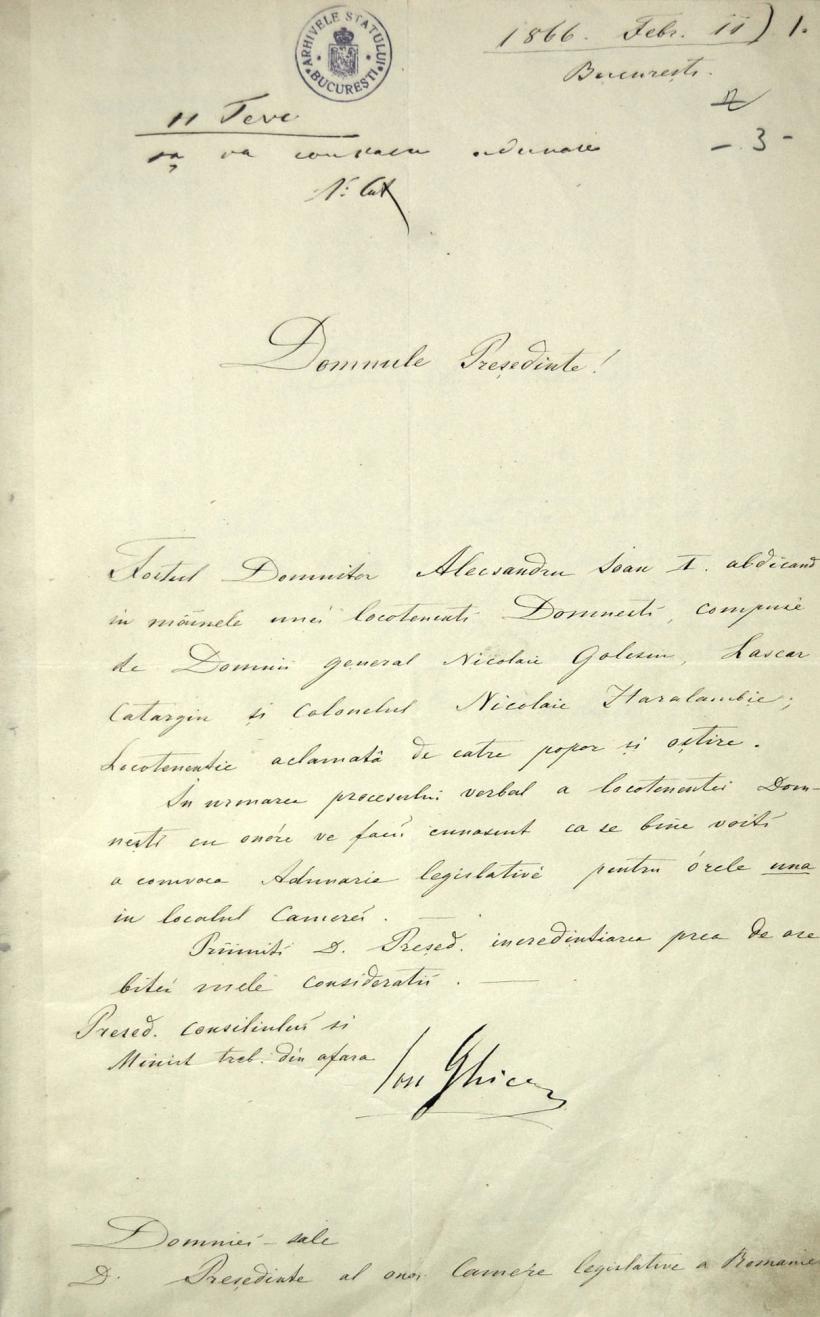 ARHIVELE STATULUI
BUCURESTI
1866. Febr. 11) 1.
Bucuresti.
- 3 -
11 Fevr
sa va adunare
Domnule Preşedinte!
Fostul Domnitor Alecsandru Ioan I. abdicand
in mâinele unei locotenenti Domnesti, compuse
de Domnii general Nicolaie Golescu, Lascar
Catargiu și Colonelul Nicolaie Haralambie;
Locotenentie aclamată de catre popor și oștire.
In urmarea procesului verbal a locotenentei Dom-
nești cu onóre ve facŭ cunoscut ca se bine voiti
a convoca Adunarie legislativé pentru órele una
in localul Camerei.
Priimiti D. Președ. incredintiarea prea de ose
bitei mele consideratii.
Presed. Consiliuluĭ si
Minist treb. din afara
Ion Ghica
Domniei-sale
D. Președinte al onor. Camere legislative a Romanie